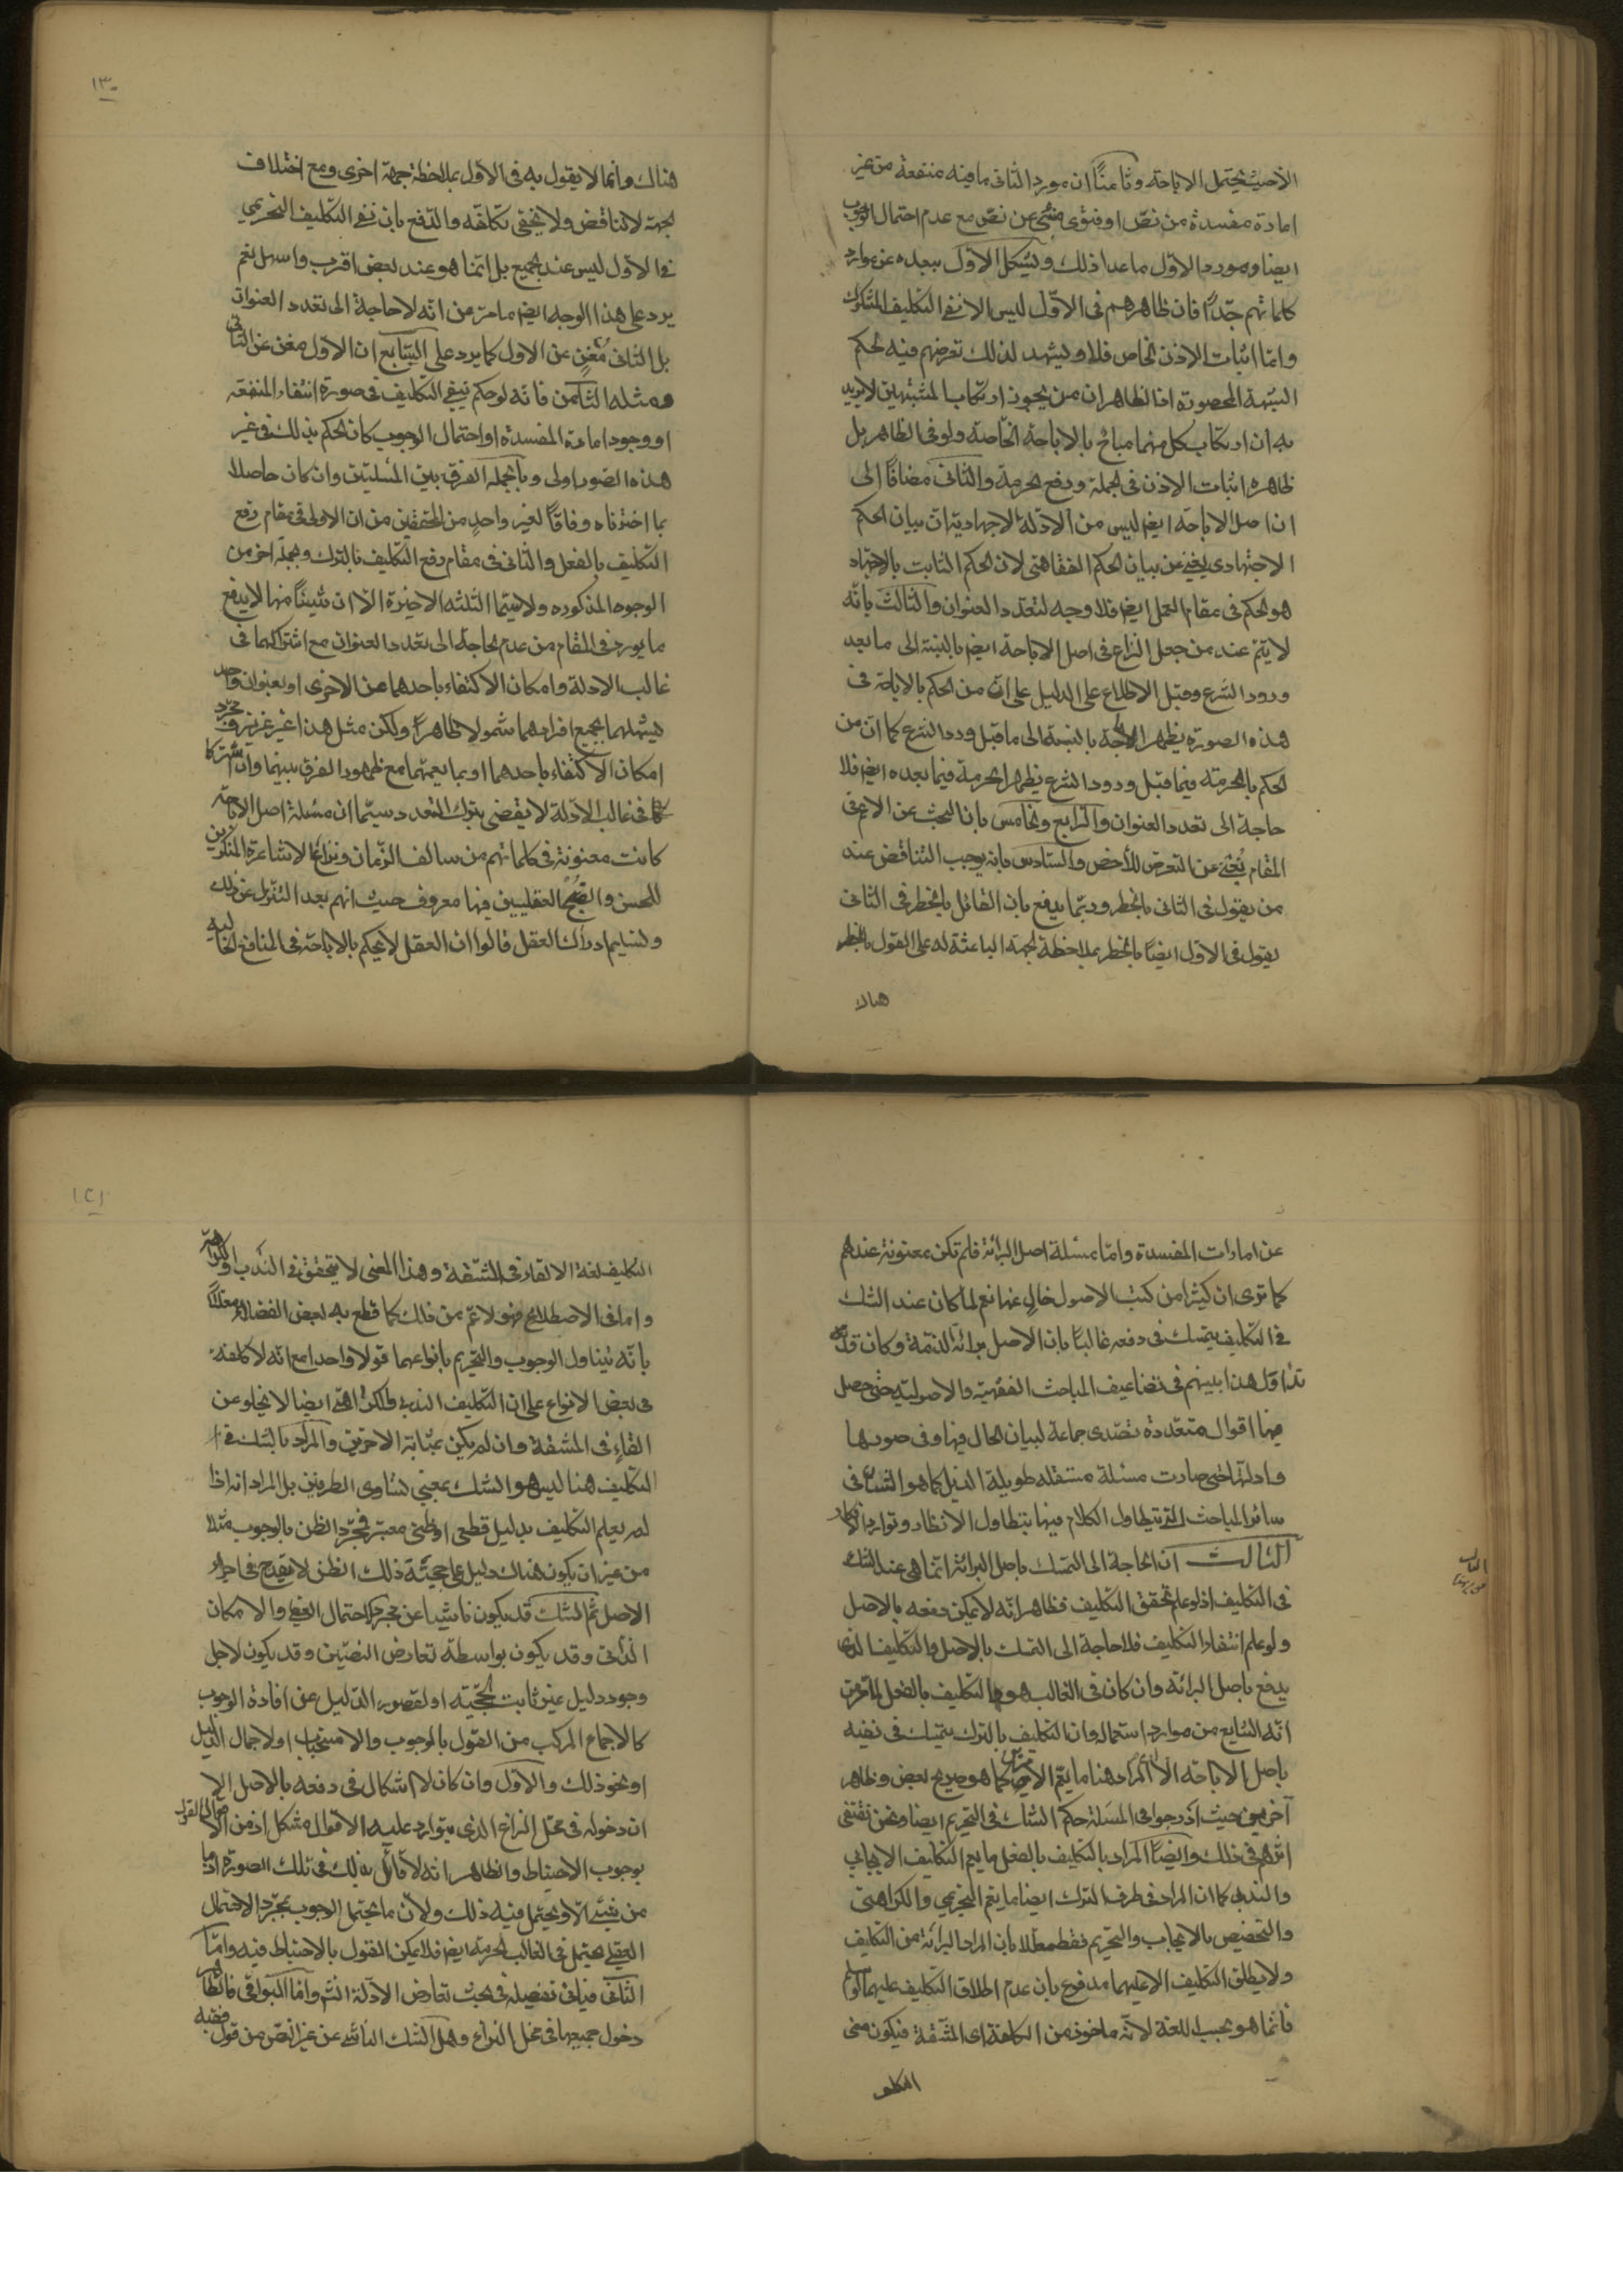 الا حيث يحتمل الاباحة وثامنًا ان مورد الثانى ما فيه منفعة من غير
امارة مفسدة من نصّ او فتوى منبئ عن نصّ مع عدم احتمال الوجوب
ايضا ومورد الاول ما عدا ذلك ويشكل الاول ببعده عن موارد
كلماتهم جدًّا فان ظاهرهم فى الاوّل ليس الا نفى التكليف المشكوك
وامّا اثبات الاذن الخاص فلا ويشهد لذلك تعرضهم فيه لحكم
الشبهة المحصورة اذ الظاهر ان من يجوز ارتكاب المشتبهين لا يريد
به ان ارتكاب كل منهما مباح بالاباحة الخاصة ولو فى الظاهر بل
ظاهره اثبات الاذن فى الجملة ورفع الحرمة والثانى مضافًا الى
ان اصل الاباحة ايضا ليس من الادلة الاجتهادية ان بيان الحكم
الاجتهادى يغنى عن بيان الحكم الفقاهتى لان الحكم الثابت بالاجتهاد
هو الحكم فى مقام العمل ايضا فلا وجه لتعدد العنوان والثالث بانّه
لا يتم عند من جعل النزاع فى اصل الاباحة ايضا بالنسبة الى ما بعد
ورود الشرع وقبل الاطلاع على الدليل على ان من الحكم بالاباحة فى
هذه الصورة يظهر الاباحة بالنسبة الى ما قبل ورود الشرع كما ان من
الحكم بالحرمة فيما قبل ورود الشرع يظهر الحرمة فيما بعده ايضا فلا
حاجة الى تعدد العنوان والرابع والخامس بان البحث عن الاعم فى
المقام يُغنى عن التعرض للأخص والسادس بانه يوجب التناقض عند
من يقول فى الثانى بالحظر وربّما يدفع بان القائل بالحظر فى الثانى
يقول فى الاول ايضًا بالحظر بملاحظة الجهة الباعثة له على القول بالحظر
هناك
١٣٠
هناك وانما لا يقول به فى الاول بملاحظة جهة اخرى ومع اختلاف
الجهة لا تناقض ولا يخفى تكلفه والدفع بان نفى التكليف التحريمي
فى الاول ليس عند الجميع بل انما هو عند بعض اقرب واسهل نعم
يرد على هذا الوجه ايضا ما مرّ من انّه لا حاجة الى تعدد العنوان
بل الثانى مُغنٍ عن الاول كما يرد على السّابع ان الاوّل مغن عن الثانى
ومثله الثامن فانّه لو حكم بنفى التكليف فى صورة انتفاء المنفعة
او وجود امارة المفسدة او احتمال الوجوب كان الحكم بذلك فى غير
هذه الصور اولى وبالجملة الفرق بين المسئلتين وان كان حاصلا
بما اخترناه وفاقًا لغير واحدٍ من المحققين من ان الاولى فى مقام رفع
التكليف بالفعل والثانى فى مقام رفع التكليف بالترك وبجملة اخر من
الوجوه المذكورة ولا سيّما الثلثة الاخيرة الّا ان شيئًا منها لا يدفع
ما يورد فى المقام من عدم الحاجة الى تعدد العنوان مع اشتراكهما فى
غالب الادلة وامكان الاكتفاء باحدهما عن الاخرى او بعنوان واحد
يشملهما بجميع افرادهما شمولا ظاهرًا ولكن مثل هذا غير عزيز فمجرّد
امكان الاكتفاء باحدهما او بما يعمهما مع ظهور الفرق بينهما وان اشتركا
فى غالب الادلة لا يقضى بترك التعدد سيّما ان مسئلة اصل الاباحة
كانت معنونة فى كلماتهم من سالف الزّمان ونزاع الاشاعرة المنكرين
للحسن والقبح العقليين فيها معروف حيث انهم بعد التنزل عن ذلك
وتسليم ادراك العقل قالوا ان العقل لا يحكم بالاباحة فى المنافع الخالية
عن امارات المفسدة وامّا مسئلة اصل البرائة فلم تكن معنونة عندهم
كما ترى ان كثيرا من كتب الاصول خالٍ عنها نعم لما كان عند الشك
فى التكليف يتمسك فى دفعه غالبًا بان الاصل برائة الذمة وكان قد
تداول هذا بينهم فى تضاعيف المباحث الفقهية والاصولية حتى حصل
فيها اقوال متعددة تصدى جماعة لبيان الحال فيها وفى صورها
وادلّتها حتى صارت مسئلة مستقلة طويلة الذيل كما هو الشان فى
سائر المباحث التى يتطاول الكلام فيها بتطاول الانظار وتوارد الافكار
الثالث ان الحاجة الى التمسك باصل البرائة انما هى عند الشك
فى التكليف اذ لو علم تحقق التكليف فظاهر انّه لا يمكن دفعه بالاصل
ولو علم انتفاء التكليف فلا حاجة الى التمسك بالاصل والتكليف الذى
يدفع باصل البرائة وان كان فى الغالب هو التكليف بالفعل لما مرّ من
انّه الشايع من موارد استعماله وان التكليف بالترك يتمسك فى نفيه
باصل الاباحة الّا ان المراد هنا ما يعم الامرين كما هو صريح بعض وظاهر
آخرين حيث ادرجوا فى المسئلة حكم الشك فى التحريم ايضا ونحن نقتفى
اثرهم فى ذلك وايضًا المراد بالتكليف بالفعل ما يعم التكليف الايجابى
والندبى كما ان المراد فى طرف الترك ايضا ما يعم التحريمي والكراهتى
والتخصيص بالايجاب والتحريم فقط معلّلا بان المراد البرائة من التكليف
ولا يطلق التكليف الا عليهما مدفوع بان عدم اطلاق التكليف عليهما لو سلم
فانّما هو بحسب اللغة لانّه ماخوذ من الكلفة اى المشقة فيكون معنى
التكليف
الثالث
١٣١
التكليف لغة الالقاء فى المشقة وهذا المعنى لا يتحقق فى الندب والكراهة
وامّا فى الاصطلاح فهو لاعم من ذلك كما قطع به بعض الفضلاء معللا
بانّه يتناول الوجوب والتحريم بانواعهما قولا واحدا مع انّه لا كلفة
فى بعض الانواع على ان التكليف الندبى والكراهتى ايضا لا يخلو عن
القاءٍ فى المشقة وان لم يكن بمثابة الاخرين والمراد بالشك فى
التكليف هنا ليس هو الشك بمعنى تساوى الطرفين بل المراد انه اذا
لم يعلم التكليف بدليل قطعى او ظنى معتبر فمجرّد الظن بالوجوب مثلا
من غير ان يكون هناك دليل على حجيّة ذلك الظن لا يقدح فى اجراء
الاصل ثم الشك قد يكون ناشيا عن مجرد احتمال العقلى والامكان
الذاتى وقد يكون بواسطة تعارض النصّين وقد يكون لاجل
وجود دليل غير ثابت الحجّية او لقصور الدّليل عن افادة الوجوب
كالاجماع المركب من القول بالوجوب والاستحباب او لاجمال الدليل
او نحو ذلك والاول وان كان لا اشكال فى دفعه بالاصل الا
ان دخوله فى محل النزاع الذى يتوارد عليه الاقوال مشكل اذ من الاقوال القول
بوجوب الاحتياط والظاهر انه لا قائل بذلك فى تلك الصورة اذ ما
من شيئ الّا ويحتمل فيه ذلك ولان ما يحتمل الوجوب بمجرّد الاحتمال
العقلى يحتمل فى الغالب الحرمة ايضا فلا يمكن القول بالاحتياط فيه وامّا
الثانى فياتى تفصيله فى بحث تعارض الادلة انش وامّا البواقى فالظاهر
دخول جميعها فى محل النزاع وهل الشك الناشى عن غير النصّ من قول فقيه